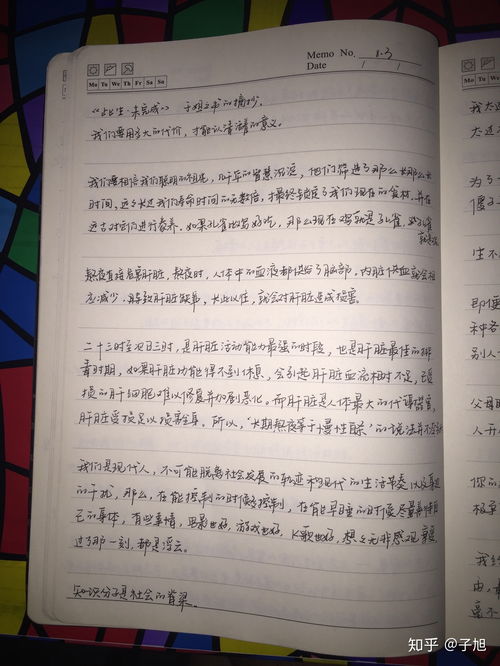 Memo No. 1.3
Mo Tu We Th Fr Sa Su
Date / /
《此生·未完成》 于娟之书的摘抄。
我们要用多大的代价，才能认清活着的意义。
我们要相信我们聪明的祖先，几千年的智慧沉淀，他们筛选了那么长那么长
时间，远远长过我们寿命时间的无数倍，才最终锁定了我们现在的食材，并在
远古对它们进行豢养。如果孔雀比鸡好吃，那么现在鸡就是孔雀，孔雀
就是鸡。
熬夜直接危害肝脏，熬夜时，人体中的血液都供给了脑部，内脏供血就会相
应减少，导致肝脏缺氧，长此以往，就会对肝脏造成损害。
二十三时至次日三时，是肝脏活动能力最强的时段，也是肝脏最佳的排
毒时期，如果肝脏功能得不到休息，会引起肝脏血流相对不足，已受
损的肝细胞难以修复并加剧恶化。而肝脏是人体最大的代谢器官，
肝脏受损足以损害全身。所以，“长期熬夜等于慢性自杀”的说法并不夸张
我们是现代人，不可能脱离社会发展的轨迹和现代的生活节奏以及身边
的干扰，那么，在能控制的时候多控制，在能早睡的时候尽量善待自
己的身体，有些事情，电影也好，游戏也好，K歌也好，想想无非感观享受，
过了那一刻，都是浮云。
知识分子是社会的脊梁。
知乎 @子旭